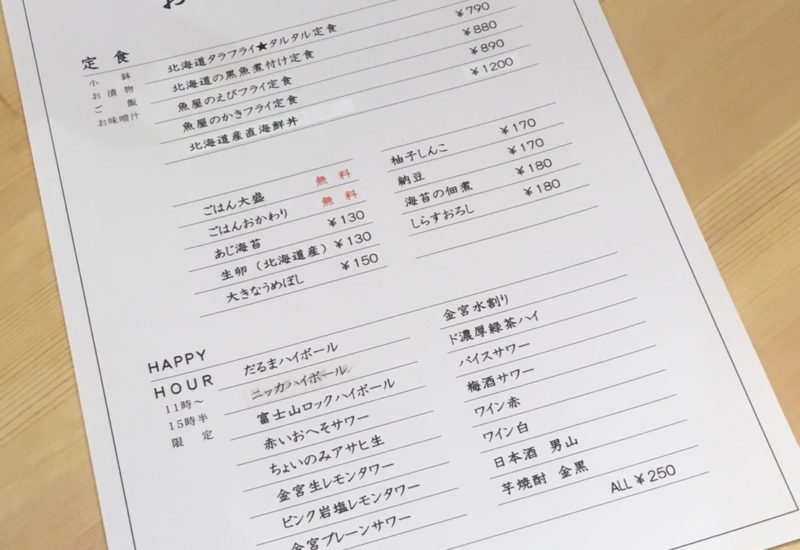 お
定食
小鉢
お漬物
ご飯
お味噌汁
北海道タラフライ★タルタル定食 ¥790
北海道の黒魚煮付け定食 ¥880
魚屋のえびフライ定食 ¥890
魚屋のかきフライ定食 ¥1200
北海道産直海鮮丼
ごはん大盛 無料
ごはんおかわり 無料
あじ海苔 ¥130
生卵(北海道産) ¥130
大きなうめぼし ¥150
柚子しんこ ¥170
納豆 ¥170
海苔の佃煮 ¥180
しらすおろし ¥180
HAPPY
HOUR
11時〜
15時半
限定
だるまハイボール
ニッカハイボール
富士山ロックハイボール
赤いおへそサワー
ちょいのみアサヒ生
金宮生レモンタワー
ピンク岩塩レモンタワー
金宮プレーンサワー
金宮水割り
ド濃厚緑茶ハイ
バイスサワー
梅酒サワー
ワイン赤
ワイン白
日本酒 男山
芋焼酎 金黒
ALL ¥250